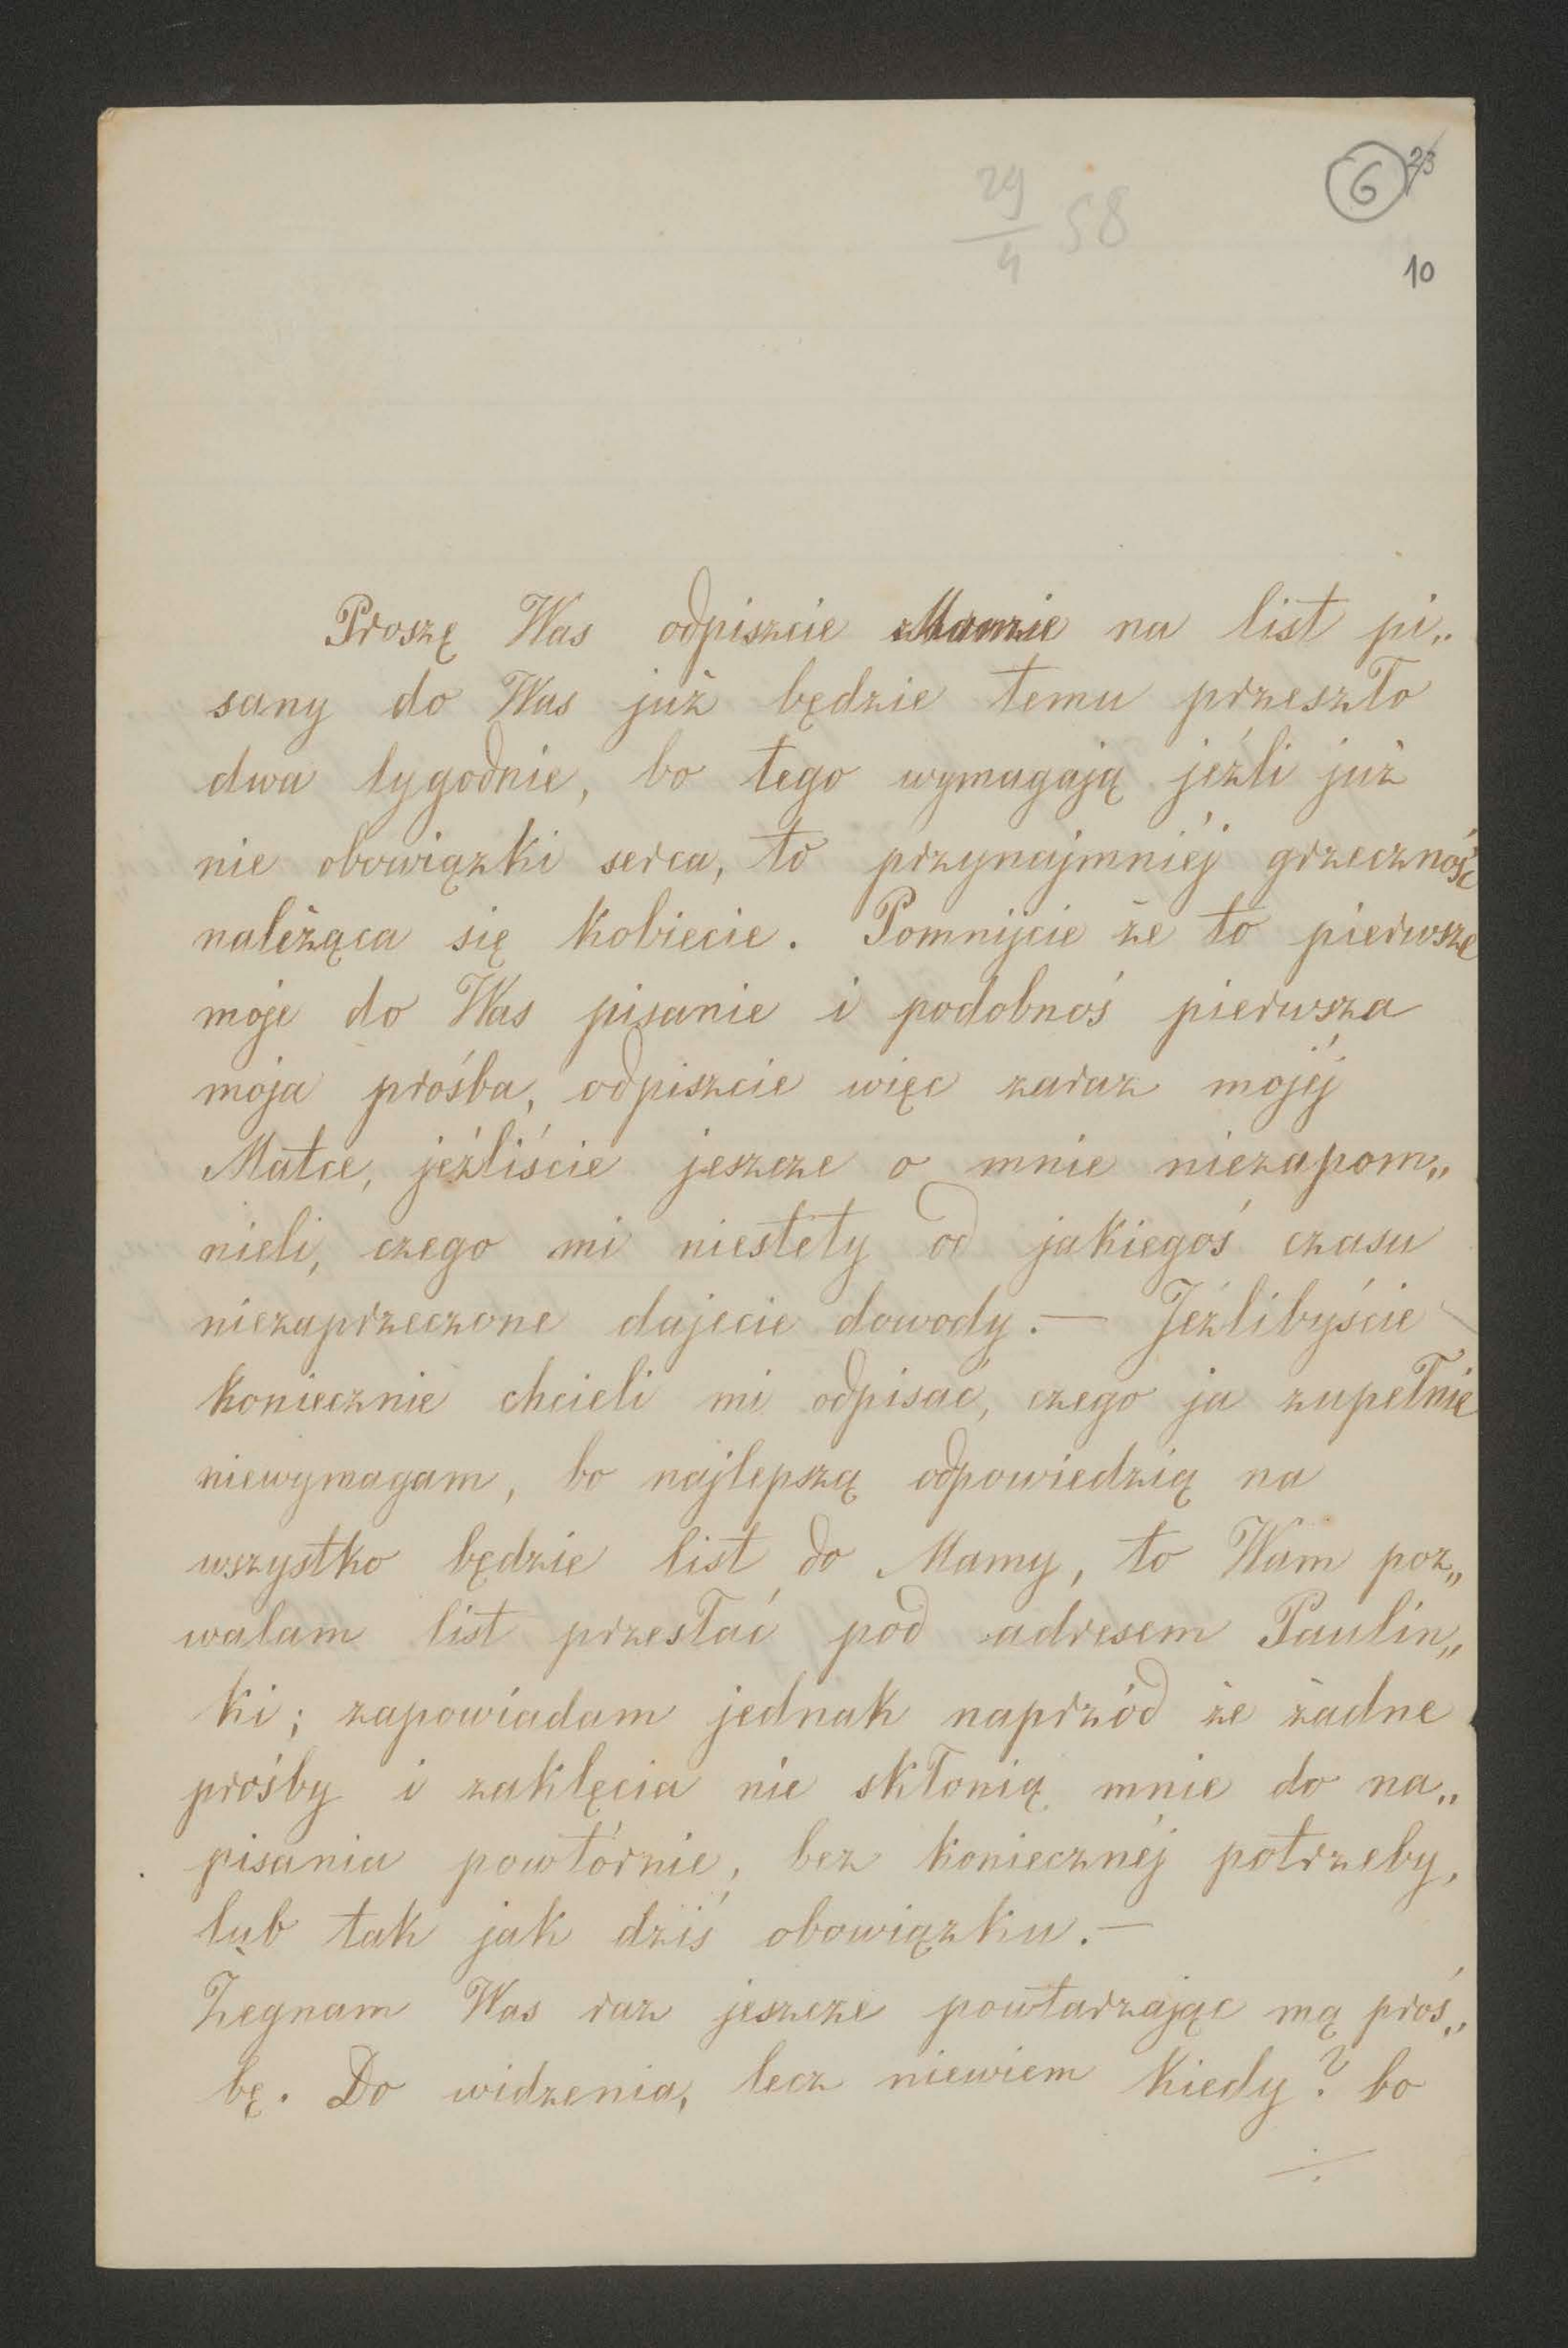 29/4 58
6 23
10
Proszę Was odpiszcie Mamie na list pi„
sany do Was już będzie temu przeszło
dwa tygodnie, bo tego wymagają jeźli już
nie obowiązki serca, to przynajmniéj grzeczność
należąca się kobiecie. Pomnijcie że to pierwsze
moje do Was pisanie i podobnoś pierwsza
moja prośba, odpiszcie więc zaraz mojéj
Matce, jeźliście jeszcze o mnie niezapom„
nieli, czego mi niestety od jakiegoś czasu
niezaprzeczone dajecie dowody.— Jeźlibyście
koniecznie chcieli mi odpisać, czego ja zupełnie
niewymagam, bo najlepszą odpowiedzią na
wszystko będzie list do Mamy, to Wam poz„
walam list przesłać pod adresem Paulin„
ki; zapowiadam jednak naprzód że żadne
prośby i zaklęcia nie skłonią mnie do na„
pisania powtórnie, bez koniecznéj potrzeby,
lub tak jak dziś obowiązku.—
Żegnam Was raz jeszcze powtarzając mą proś„
bę. Do widzenia, lecz niewiem kiedy? bo
÷